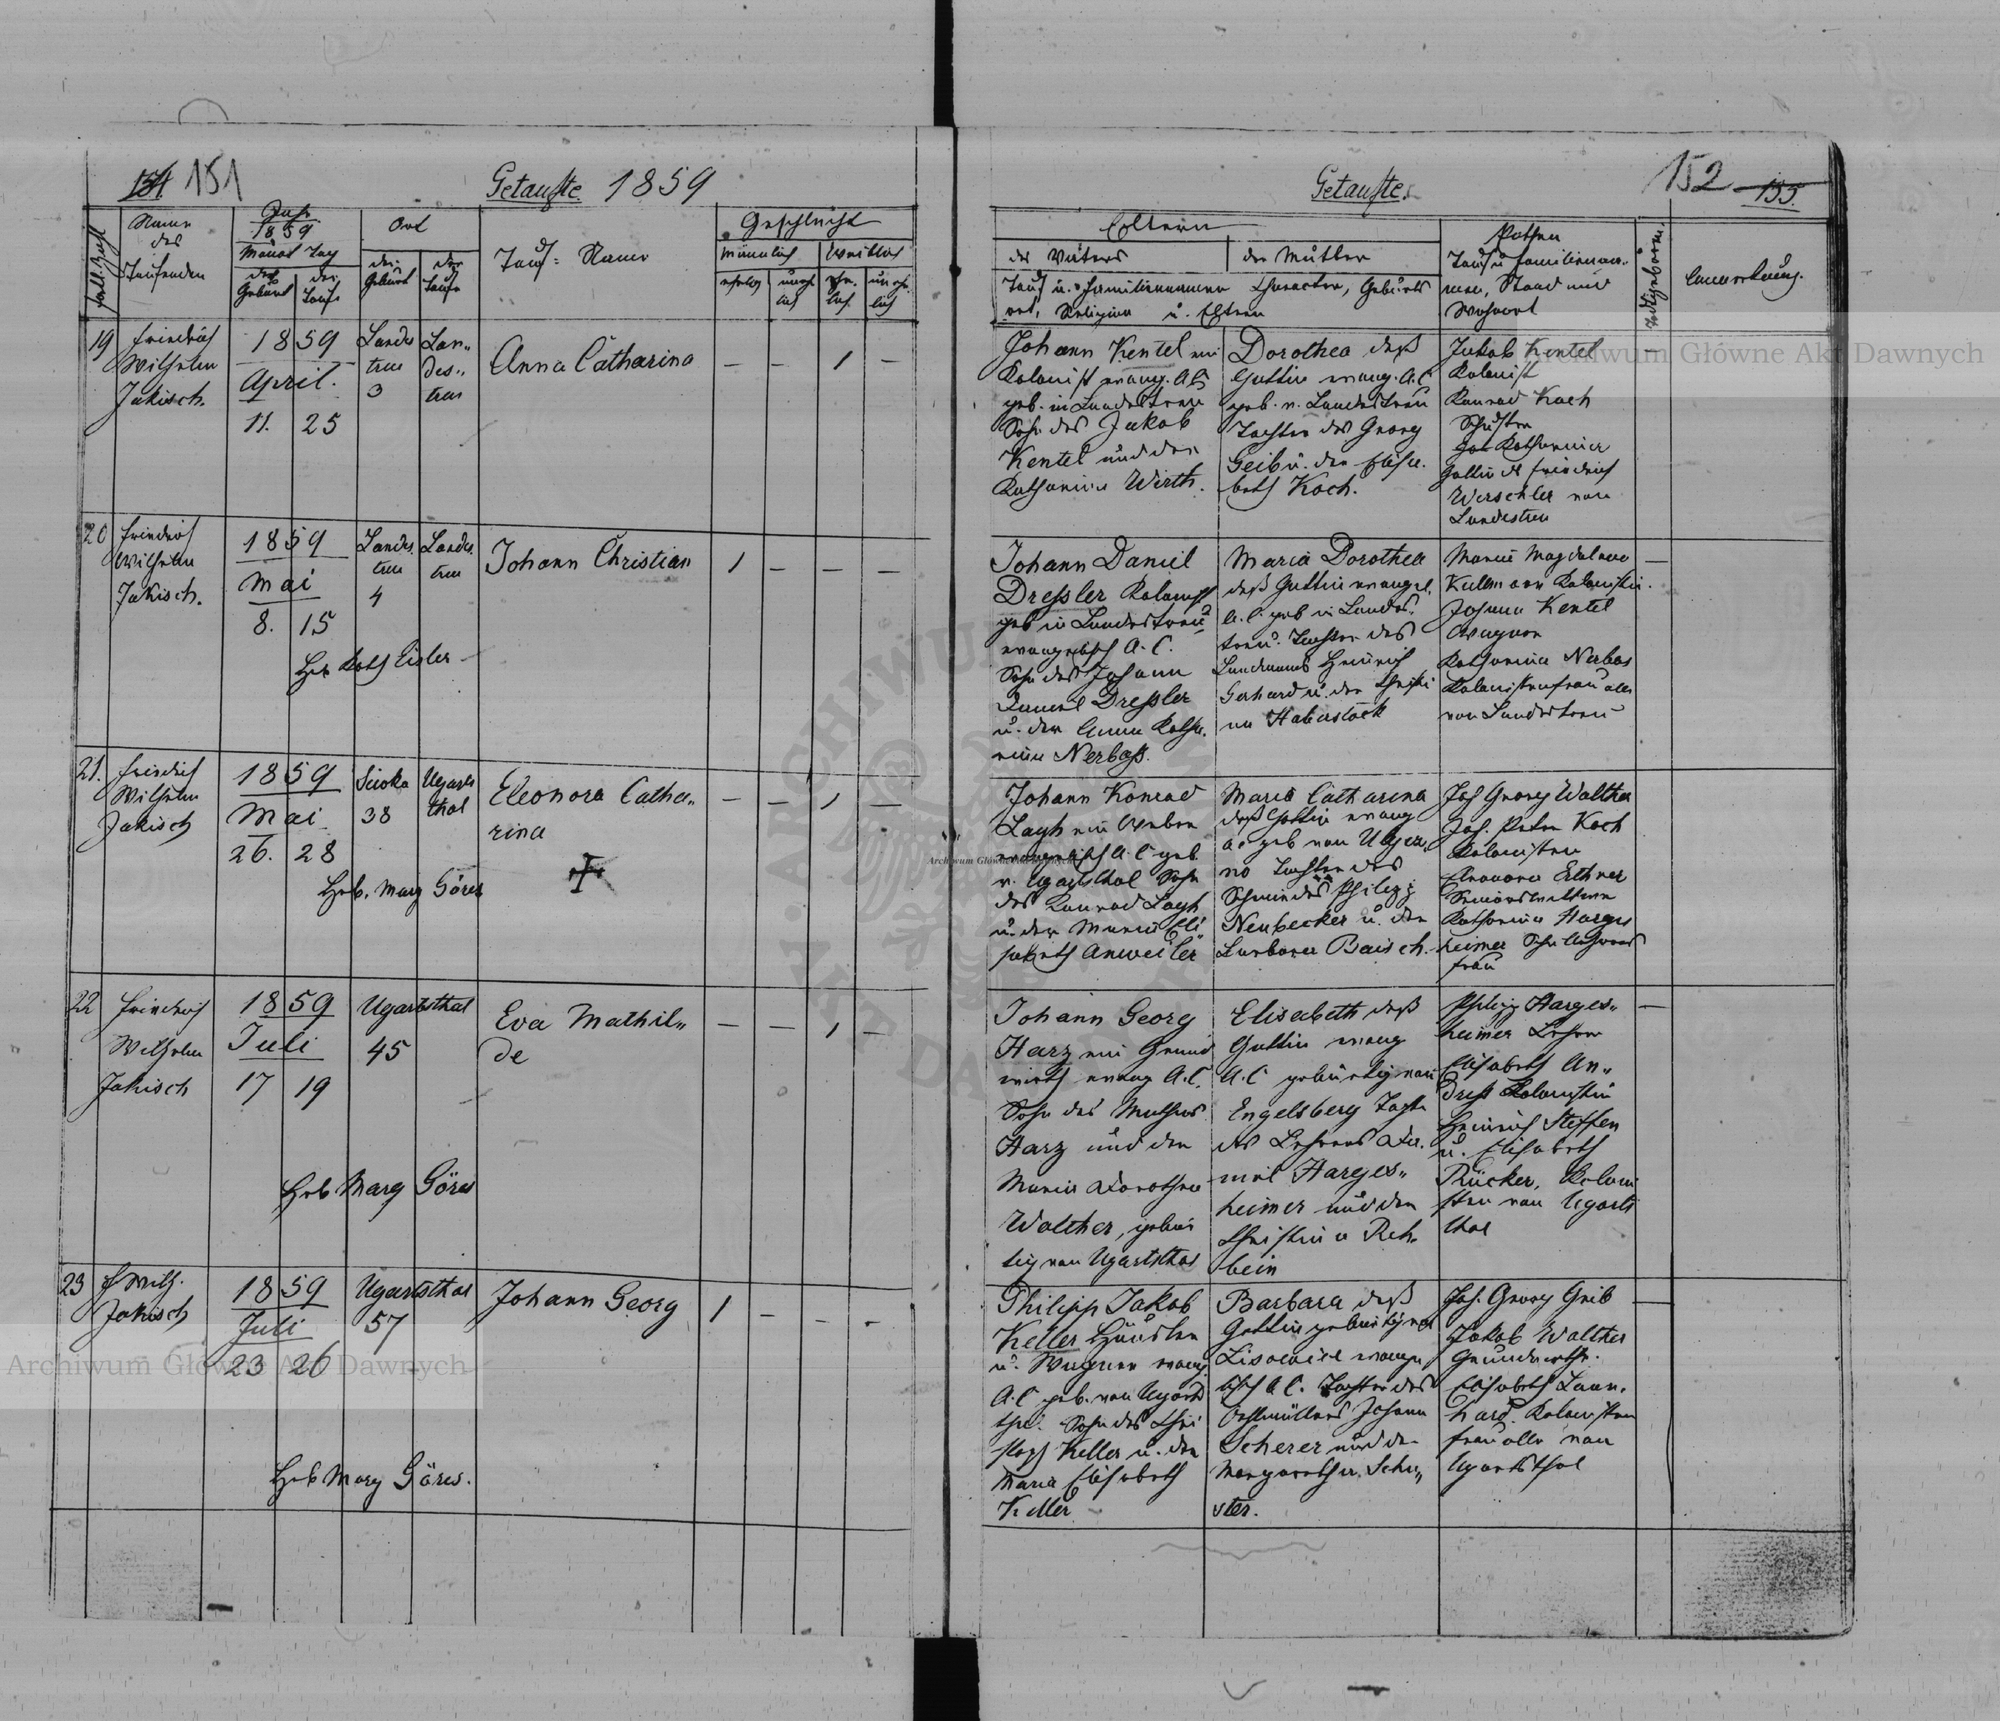 151
Getaufte 1859
Name
des
Taufenden
Jahr
1859
Monat Tag
der
Geburt
der
Taufe
Ort
der
Geburt
der
Taufe
Tauf-Name
Geschlecht
männlich
weiblich
ehelich
unehe
lich
ehe
lich
unehe
lich
19
Friedrich
Wilhelm
Jakisch.
1859
April.
11. 25
Landes
treu
3
Lan„
des„
treu
Anna Catharina
— — 1 —
20
Friedrich
Wilhelm
Jakisch.
1859
Mai
8. 15
Landes
treu
4
Landes
treu
Johann Christian
1 — — —
Heb Kath Eisler
21.
Friedrich
Wilhelm
Jakisch
1859
Mai
26. 28
Siwka
38
Ugarts
thal
Eleonora Catha„
rina
— — 1 —
Heb. Marg Göres
22
Friedrich
Wilhelm
Jakisch
1859
Juli
17 19
Ugartsthal
45
Eva Mathil„
de
— — 1 —
Heb Marg Göres
23
F Wilh.
Jakisch
1859
Juli
23 26
Ugartsthal
57
Johann Georg
1 — — —
Heb Marg Göres.
Getaufte.
152
155.
Eltern
des Vaters
der Mutter
Tauf u. Familienname Character, Geburts
ort, Religion u. Eltern
Pathen
Tauf u Familienna„
men, Stand und
Wohnort
Anmerkung.
Johann Kentel ein
Kolonist evang. A C
geb. in Landestreu
Sohn des Jakob
Kentel und der
Katharina Wirth.
Dorothea deß
Gattin evang. A. C
geb. v. Landestreu
Tochter des Georg
Geib u. der Elisa„
beth Koch.
Jakob Kentel
Kolonist
Konrad Koch
Schuster
Katharina
Gattin d Friedrich
Werschler von
Landestreu
Johann Daniel
Dreßler Kolonist
geb in Landestreu
evangelisch A. C.
Sohn des Johann
Daniel Dreßler
u. der Anna Katha„
rina Nerbaß.
Maria Dorothea
deß Gattin evangel.
A. C. geb in Landes„
treu. Tochter des
Landmanns Heinrich
Gerhard u. der Christi
na Haberstock
Maria Magdalena
Kullmann Kolonistin.
Johann Kentel
Wagner
Katharina Nerbas
Kolonistenfrau alle
von Landestreu
Johann Konrad
Layh ein Weber
evangelisch A. C geb.
v. Ugartsthal Sohn
des Konrad Layh
u. der Maria Eli„
sabeth Anweiler
Maria Catharina
deß Gattin evang
Tochter des
Schmiedes Philipp
Neubecker u. der
Barbara Baisch.
Joh Georg Walther
Joh. Peter Koch
Kolonisten
Eleonora
Katharina Harges
heimer
frau
Johann Georg
Harz ein Grund
wirth evang A. C.
Sohn des Mathias
Harz und der
Maria Dorothea
Walther, gebür
tig von Ugartsthal
Elisabeth deß
Gattin evang
A. C gebürtig von
Engelsberg Tochter
des Lehrers Da„
niel Harges„
heimer und der
Christina Reh„
bein
Philipp Harges„
heimer Lehrer
Elisabeth An„
dreß Kolonistin
Heinrich Steffen
u. Elisabeth
Rücker, Koloni
sten von Ugarts
thal
Philipp Jakob
Keller Häusler
u. Wagner evang
A. C geb. von Ugarts
thal. Sohn des Chri
stoph Keller u. der
Maria Elisabeth
Keller
Barbara deß
Gattin gebürtig von
Tochter des
Oehlmüllers Johann
Scherer und der
Margaretha Schu„
ster.
Joh. Georg Geib
Jakob Walther
Grundwirthe.
Elisabeth Laun„
hard. Kolonisten
frau alle von
Ugartsthal
Archiwum Główne Akt Dawnych
Archiwum Główne Akt Dawnych